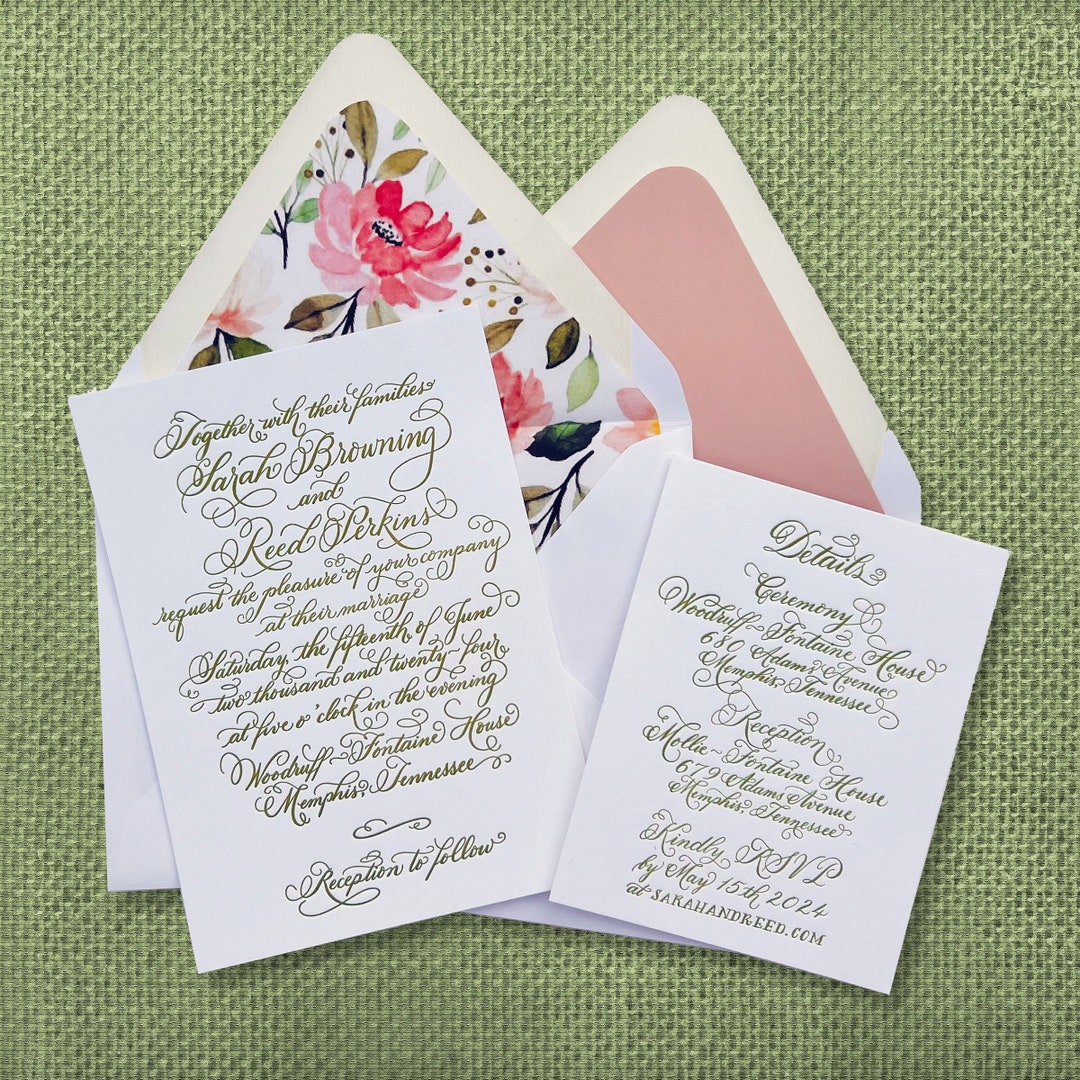 Together with their families
Sarah Browning
and
Reed Perkins
request the pleasure of your company
at their marriage
Saturday, the fifteenth of June
two thousand and twenty-four
at five o'clock in the evening
Woodruff-Fontaine House
Memphis, Tennessee
Reception to follow
Details
Ceremony
Woodruff-Fontaine House
630 Adams Avenue
Memphis, Tennessee
Reception
Mollie-Fontaine House
679 Adams Avenue
Memphis, Tennessee
Kindly RSVP
by May 15th 2024
at SARAHANDREED.COM